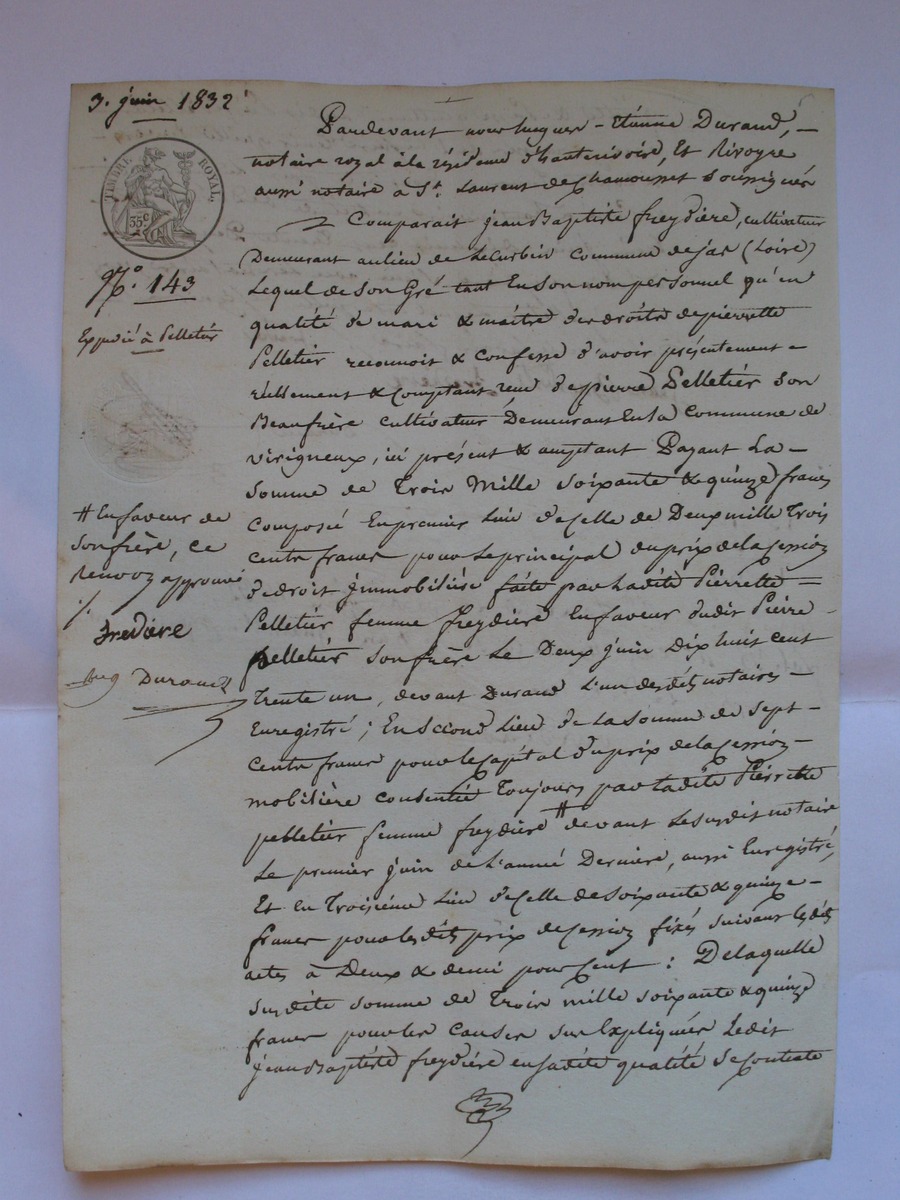 3. juin 1832
TIMBRE ROYAL
35c
N.° 143
Expédié à Pelletier
Pardevant nous hugues-Etienne Durand,
notaire royal à la résidence d'hauterivoire, Et Rivoyre
aussi notaire à St. Laurent de Chamousset Soussignés
Comparait jean Baptiste freydière, cultivateur
Demeurant au lieu de Le Curbin Commune de jas (Loire)
Lequel de Son Gré tant En Son nom personnel qu'en
qualité de mari & maître des droits de pierrette
Pelletier reconnoit & Confesse d'avoir présentement
réellement & Comptant reçu de pierre Pelletier Son
Beaufrère cultivateur Demeurant En la Commune de
virigneux, ici présent & acceptant Payant La
Somme de Trois Mille Soixante & quinze francs
Composé En premier lieu de Celle de Deux mille Trois
Cents francs pour Le principal du prix de la Cession
de droit jmmobilière faite par Ladite Pierrette
Pelletier femme freydière En faveur dudit Pierre
pelletier Son frère Le Deux juin Dix huit Cent
Trente un, devant Durand L'un desdits notaires
Enregistré; En Second Lieu de La Somme de Sept
Cents francs pour le Capital du prix de la Cession
mobilière Consentie Toujours par Ladite Pierrette
pelletier femme freydière # devant Le susdit notaire
Le premier juin de L'année Dernière, aussi Enregistré,
Et en Troisième Lieu de Celle de Soixante & quinze
francs pour lesdits prix de Cession fixés Suivant lesdits
actes à Deux & demi pour Cent : De laquelle
Susdite Somme de Trois mille Soixante & quinze
francs pour les Causes sus Expliquées Ledit
jean Baptiste freydière en sadite qualité Se Contente
# En faveur de
Son frère, Ce
Renvoy approuvé
Fredière
Durand